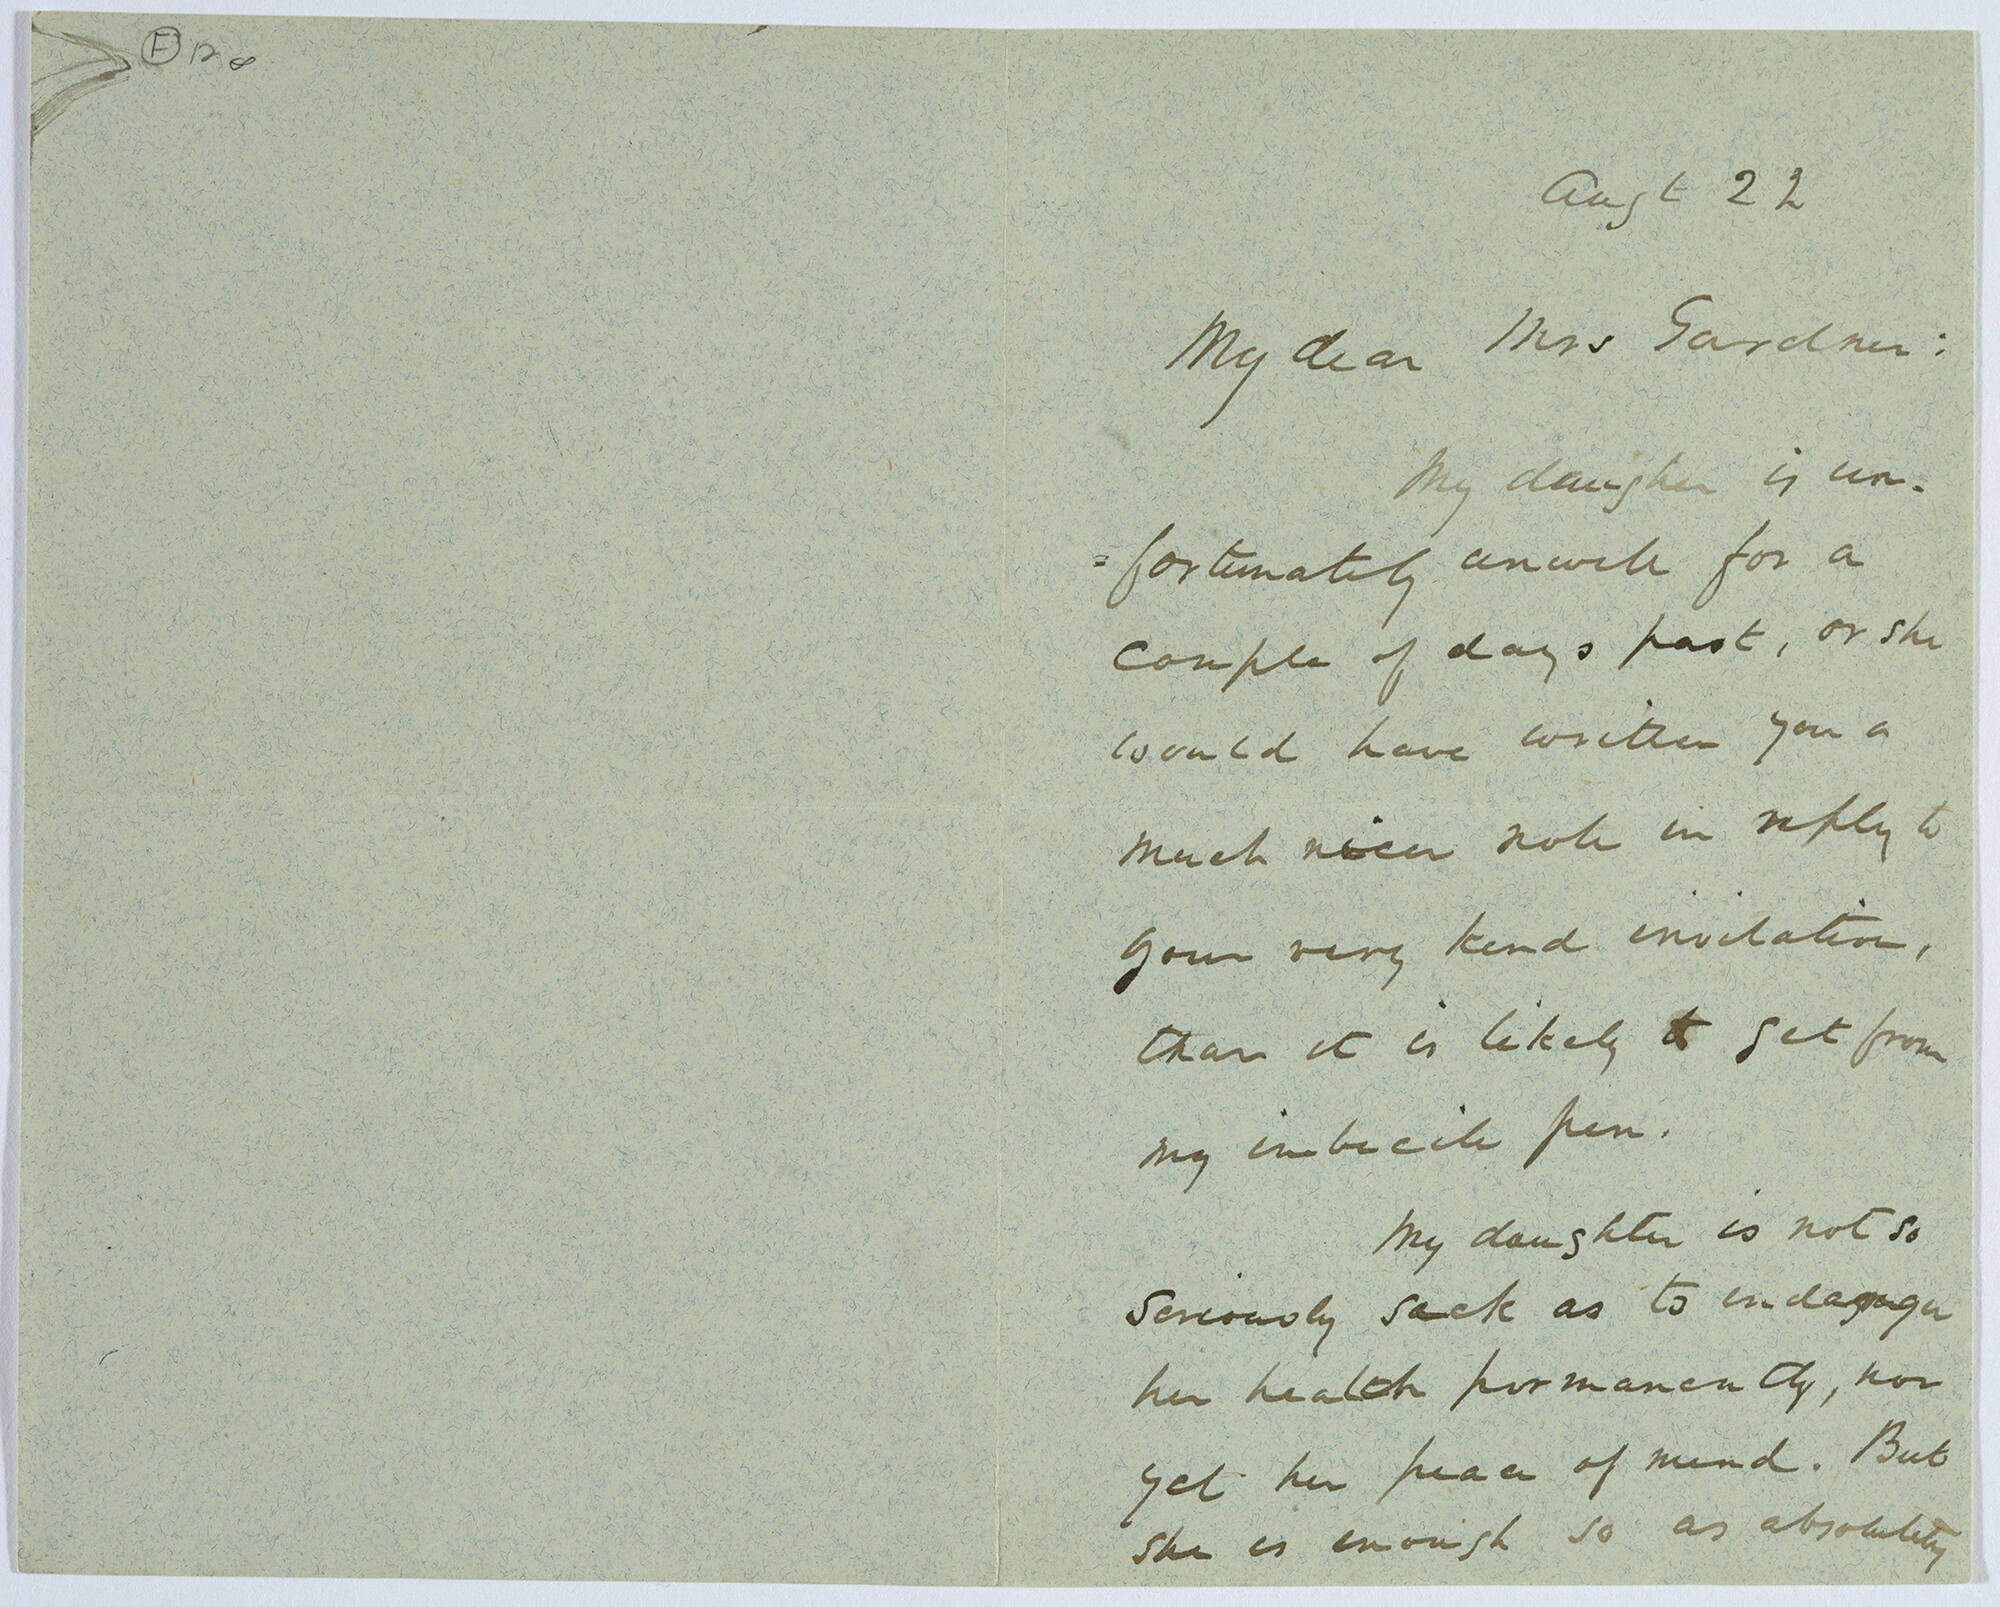 E 128
Augt 22
My dear Mrs Gardner:
My daughter is un-
=fortunately unwell for a
couple of days past, or she
would have written you a
much nicer note in reply to
your very kind invitation,
than it is likely to get from
my imbecile pen.
My daughter is not so
seriously sick as to endanger
her health permanently, nor
yet her peace of mind. But
she is enough so as absolutely